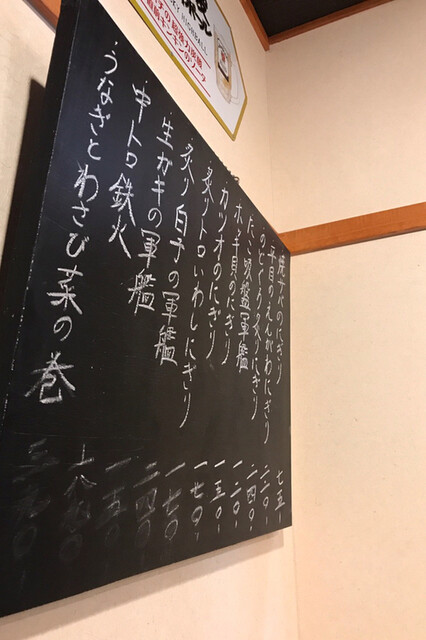 HIGHBALL
超強力炭酸
キンキンのソーダ
焼サバのにぎり 七五-
平目のえんがわにぎり
のどぐろの炙りにぎり 二四〇-
軍艦 一二〇-
ホッキ貝のにぎり 一五〇-
カツオのにぎり 一七〇-
・炙りトロいわしにぎり 一七〇-
・炙り白子の軍艦 二四〇-
・生ガキの軍艦 一五〇-
・中トロ鉄火
・うなぎとわさび菜の巻